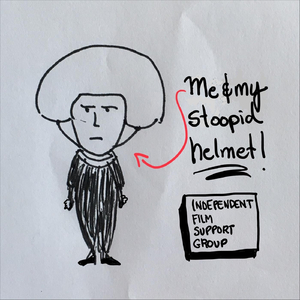 Me & my
stoopid
helmet!
INDEPENDENT
FILM
SUPPORT
GROUP